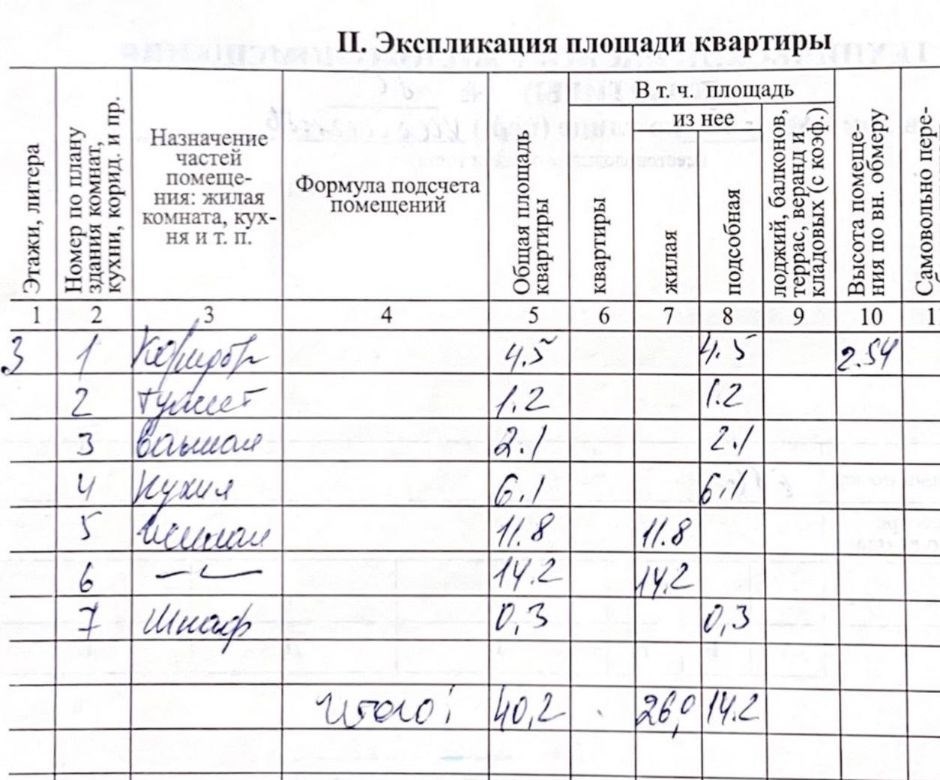 II. Экспликация площади квартиры
Этажи, литера
Номер по плану
здания комнат,
кухни, корид. и пр.
Назначение
частей
помеще-
ния: жилая
комната, кух-
ня и т. п.
Формула подсчета
помещений
Общая площадь
квартиры
В т. ч. площадь
квартиры
из нее
жилая
подсобная
лоджий, балконов,
террас, веранд и
кладовых (с коэф.)
Высота помеще-
ния по вн. обмеру
Самовольно пере-
1 2 3 4 5 6 7 8 9 10 1
3 1 Коридор 4.5 4.5 2.54
2 туалет 1.2 1.2
3 ванная 2.1 2.1
4 кухня 6.1 6.1
5 жилая 11.8 11.8
6 —〃— 14.2 14.2
7 шкаф 0,3 0,3
итого: 40,2 26,0 14.2